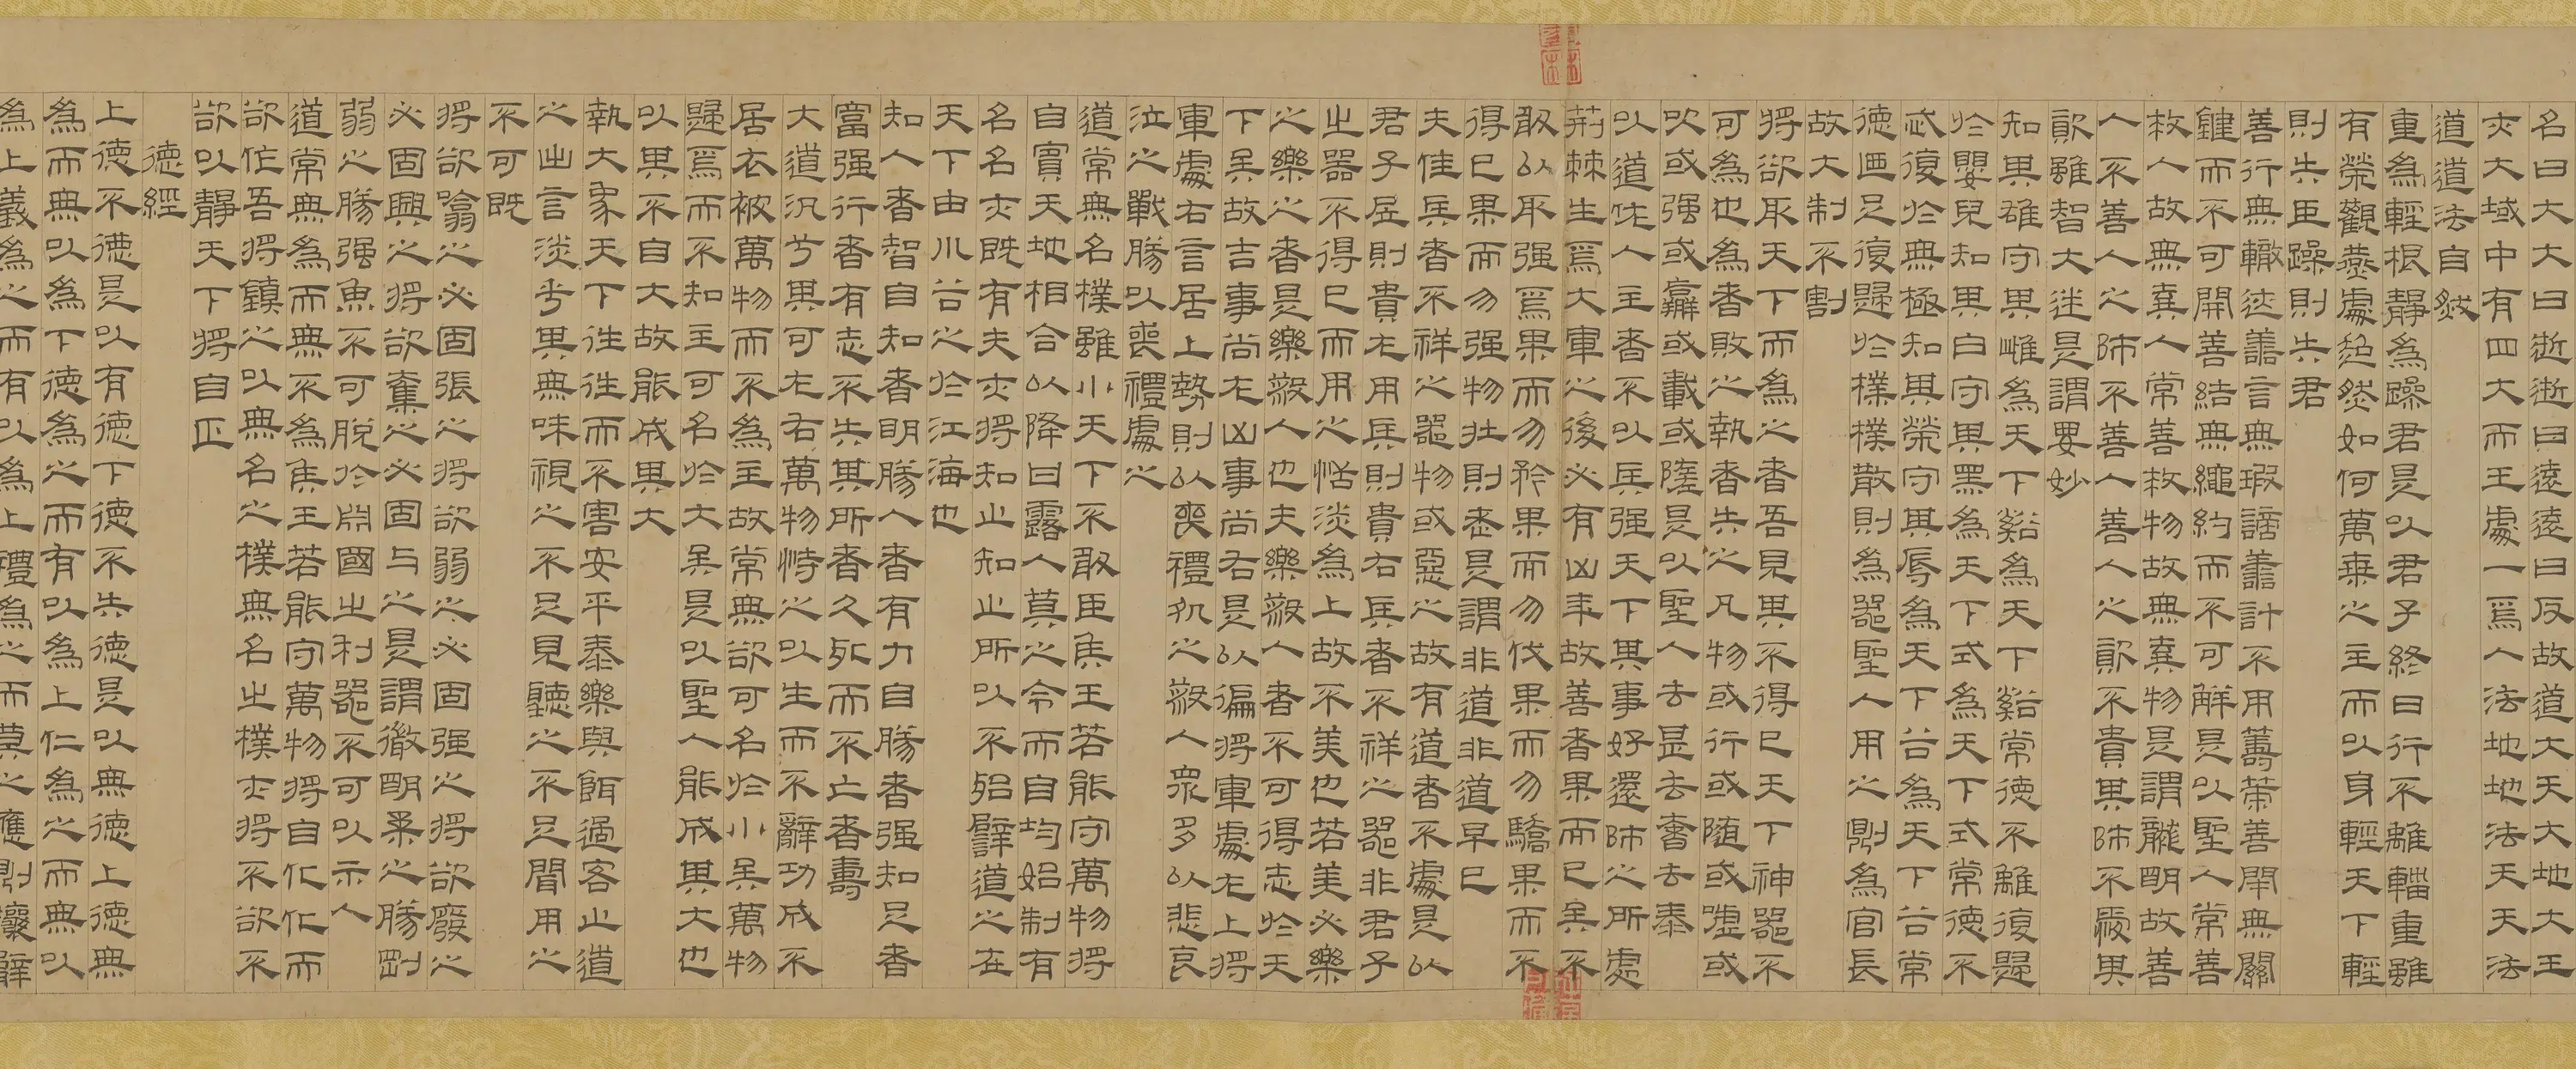 名曰大大曰逝逝曰遠遠曰反故道大天大地大王
亦大域中有四大而王處一焉人法地地法天天法
道道法自然
重為輕根靜為躁君是以君子終日行不離輜重雖
有榮觀燕處超然如何萬乘之主而以身輕天下輕
則失臣躁則失君
善行無轍迹善言無瑕謫善計不用籌策善閉無關
鍵而不可開善結無繩約而不可解是以聖人常善
救人故無棄人常善救物故無棄物是謂襲明故善
人不善人之師不善人善人之資不貴其師不愛其
資雖智大迷是謂要妙
知其雄守其雌為天下谿為天下谿常德不離復歸
於嬰兒知其白守其黑為天下式為天下式常德不
忒復於無極知其榮守其辱為天下谷為天下谷常
德迺足復歸於樸樸散則為器聖人用之則為官長
故大制不割
將欲取天下而為之者吾見其不得已天下神器不
可為也為者敗之執者失之凡物或行或隨或噓或
吹或强或羸或載或隳是以聖人去甚去奢去泰
以道佐人主者不以兵强天下其事好還師之所處
荊棘生焉大軍之後必有凶年故善者果而已矣不
敢以取强焉果而勿矜果而勿伐果而勿驕果而不
得已果而勿强物壯則老是謂非道非道早已
夫佳兵者不祥之器物或惡之故有道者不處是以
君子居則貴左用兵則貴右兵者不祥之器非君子
之器不得已而用之恬淡為上故不美也若美必樂
之樂之者是樂殺人也夫樂殺人者不可得志於天
下矣故吉事尚左凶事尚右是以偏將軍處左上將
軍處右言居上勢則以喪禮處之殺人眾多以悲哀
泣之戰勝以喪禮處之
道常無名樸雖小天下不敢臣侯王若能守萬物將
自賓天地相合以降甘露人莫之令而自均始制有
名名亦既有夫亦將知止知止所以不殆譬道之在
天下由川谷之於江海也
知人者智自知者明勝人者有力自勝者强知足者
富强行者有志不失其所者久死而不亡者壽
大道汎兮其可左右萬物恃之以生而不辭功成不
居衣被萬物而不為主故常無欲可名於小矣萬物
歸焉而不知主可名於大矣是以聖人能成其大也
以其不自大故能成其大
執大象天下往往而不害安平泰樂與餌過客止道
之出言淡乎其無味視之不足見聽之不足聞用之
不可既
將欲噏之必固張之將欲弱之必固强之將欲廢之
必固興之將欲奪之必固与之是謂微明柔之勝剛
弱之勝强魚不可脫於淵國之利器不可以示人
道常無為而無不為侯王若能守萬物將自化化而
欲作吾將鎮之以無名之樸無名之樸亦將不欲不
欲以靜天下將自正
德經
上德不德是以有德下德不失德是以無德上德無
為而無以為下德為之而有以為上仁為之而無以
為上義為之而有以為上禮為之而莫之應則攘臂